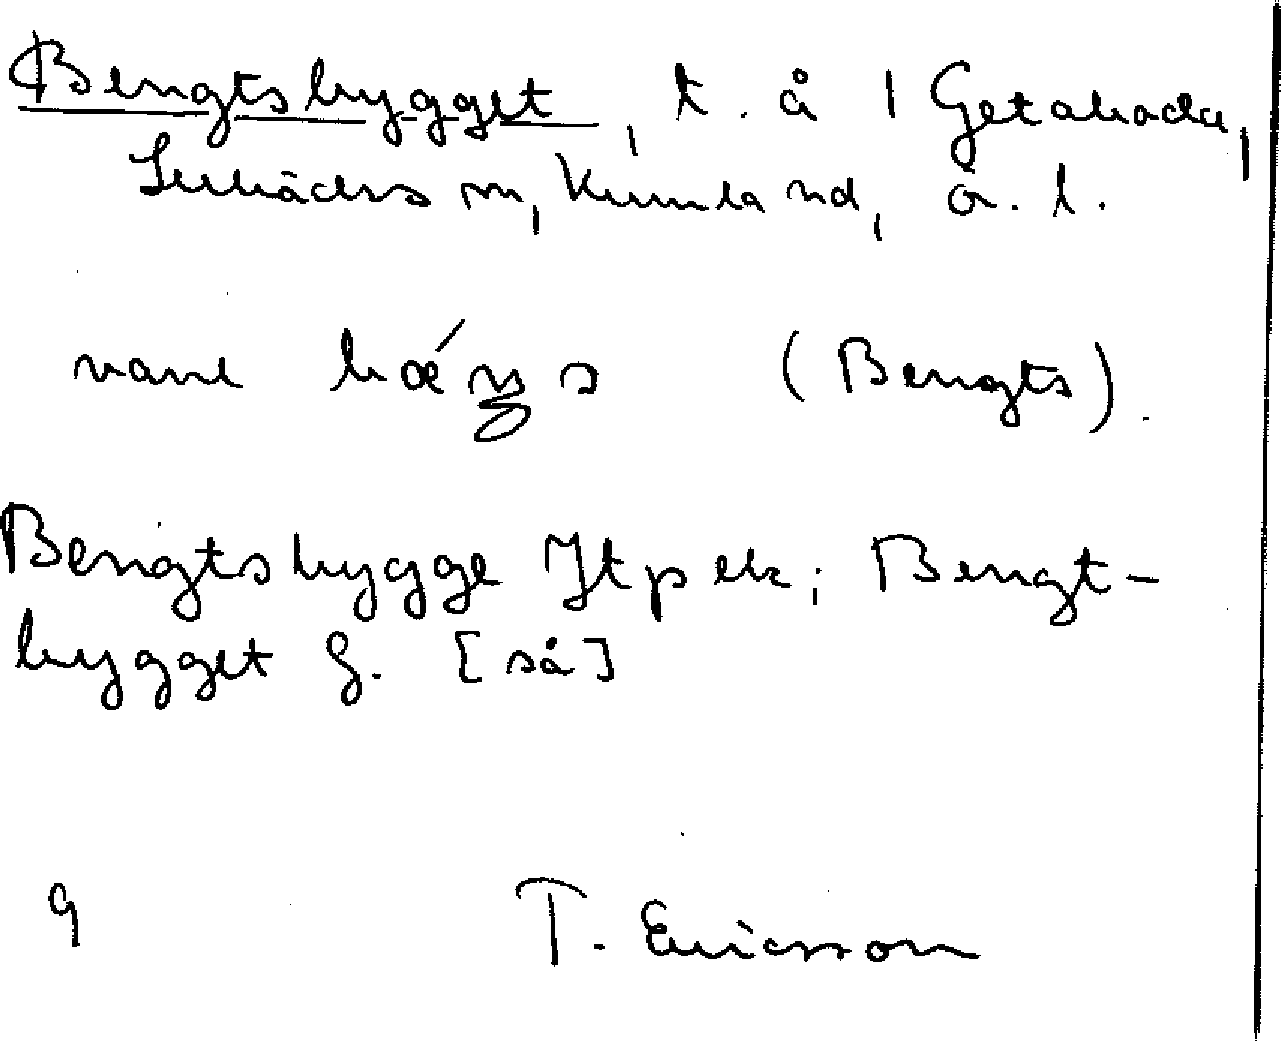 Bengtsbygget, t. å 1 Getaboda,
Lerbäcks sn, Kumla hd, Ö. l.
vanl bǽŋs (Bengts).
Bengtsbygge Jtpek; Bengt-
bygget G. [så]
9 T. Ericsson